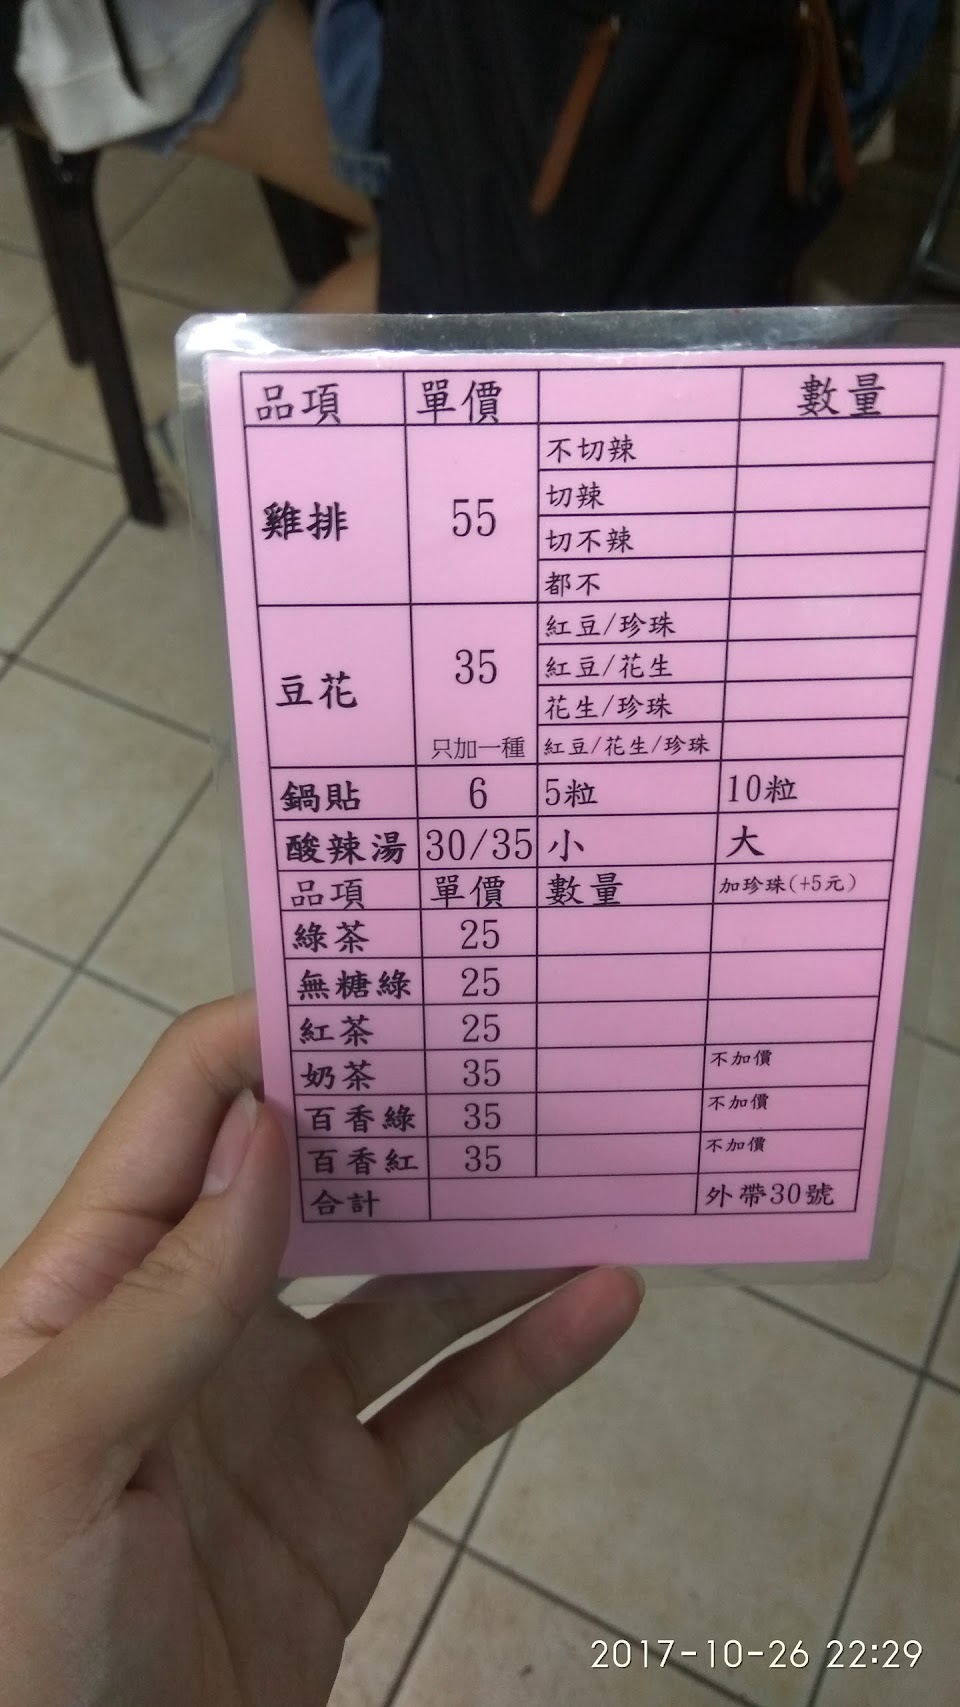 品項 單價 數量
雞排 55 不切辣
切辣
切不辣
都不
豆花 35 紅豆/珍珠
紅豆/花生
花生/珍珠
只加一種 紅豆/花生/珍珠
鍋貼 6 5粒 10粒
酸辣湯 30/35 小 大
品項 單價 數量 加珍珠(+5元)
綠茶 25
無糖綠 25
紅茶 25
奶茶 35 不加價
百香綠 35 不加價
百香紅 35 不加價
合計 外帶30號
2017-10-26 22:29